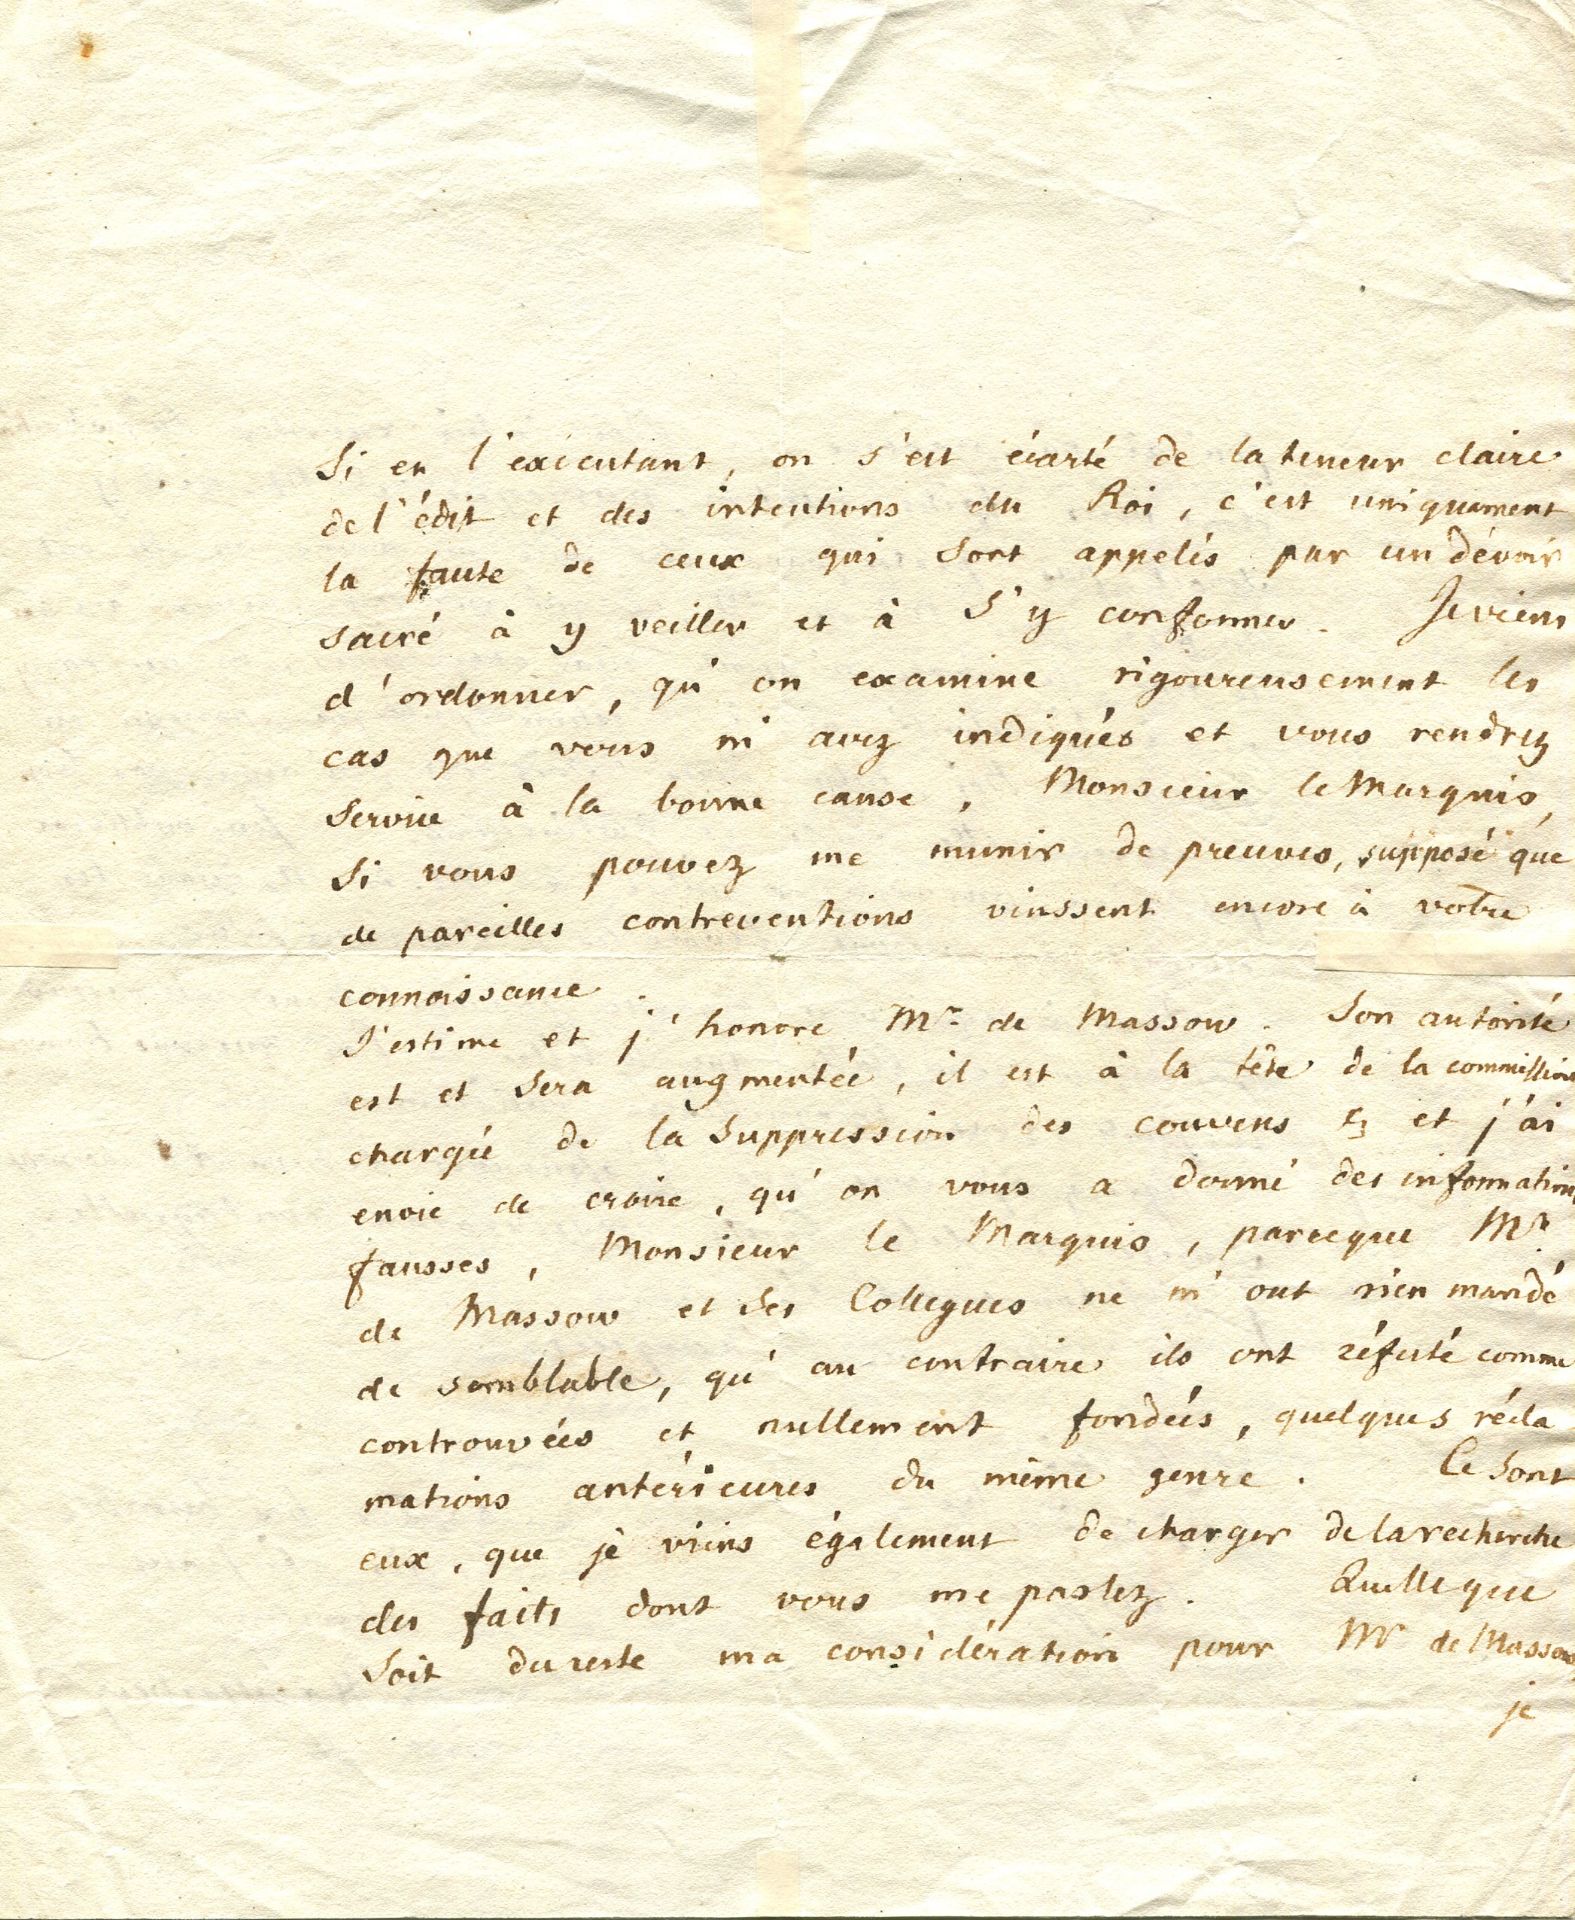 Si en l'exécutant, on s'est écarté de la teneur claire
de l'édit et des intentions du Roi, c'est uniquement
la faute de ceux qui sont appelés par un dévoir
sacré à y veiller et à s'y conformer. Je viens
d'ordonner, qu'on examine rigoureusement les
cas que vous m'avez indiqués et vous rendrez
service à la bonne cause, Monsieur le Marquis,
si vous pouvez me munir de preuves, supposé que
de pareilles contreventions vinssent encore à votre
connoissance.
J'estime et j'honore Mr. de Massow. Son autorité
est et sera augmentée, il est à la tête de la commission
chargée de la suppression des couvens et j'ai
envie de croire, qu'on vous a donné des informations
fausses, Monsieur le Marquis, parceque Mr.
de Massow et ses Collegues ne m'ont rien mandé
de semblable, qu'au contraire ils ont réfuté comme
controuvées et nullement fondées, quelques récla
mations antérieures du même genre. Ce sont
eux, que je viens également de charger de la recherche
des faits dont vous me parlez. Quelle que
soit du reste ma considération pour Mr de Massow,
je